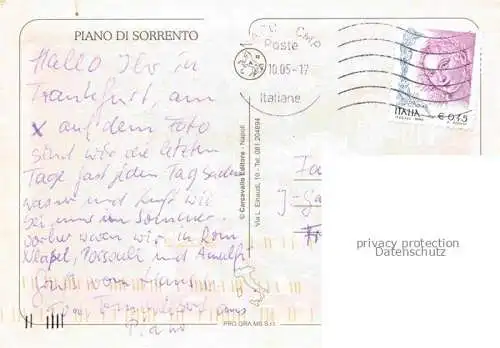 PIANO DI SORRENTO
Hallo Ihr in
Frankfurt, am
x auf dem Foto
sind wir die letzten
Tage fast jeden Tag
wasser und Luft wie
bei uns im Sommer.
Vorher waren wir in Rom
Neapel, Pozzuoli und Amalfi
Gruß von
© Carcavallo Editore - Napoli
Via L. Einaudi, 19 - Tel. 081 204694
PRO.GRA.MS S.r.l.
CMP
Poste
10.05-17
Italiane
ITALIA
€ 0,45
privacy protection
Datenschutz